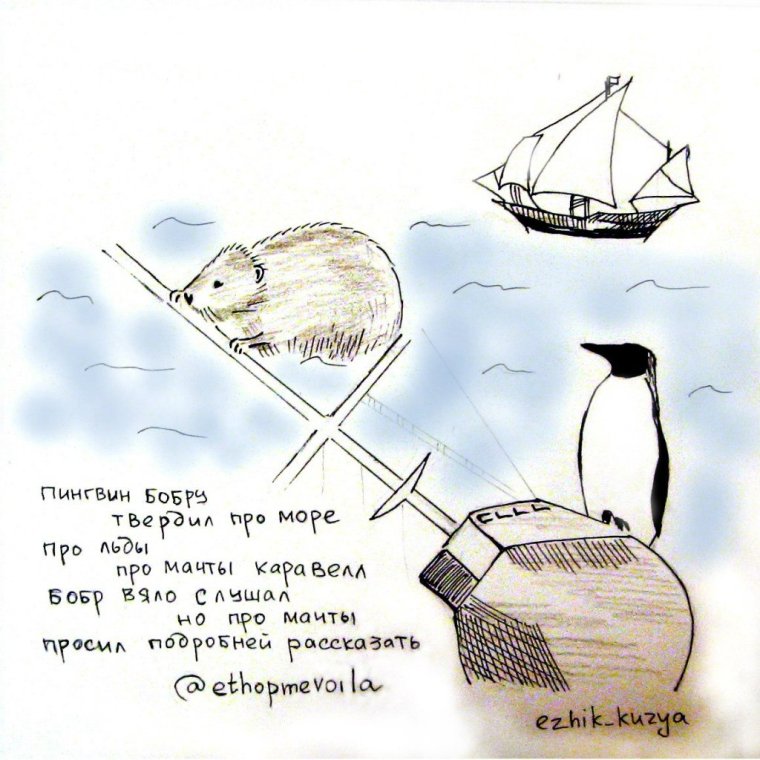 пингвин бобру
твердил про море
про льды
про мачты каравелл
бобр вяло слушал
но про мачты
просил подробней рассказать
@ethopmevoila
ezhik_kuzya